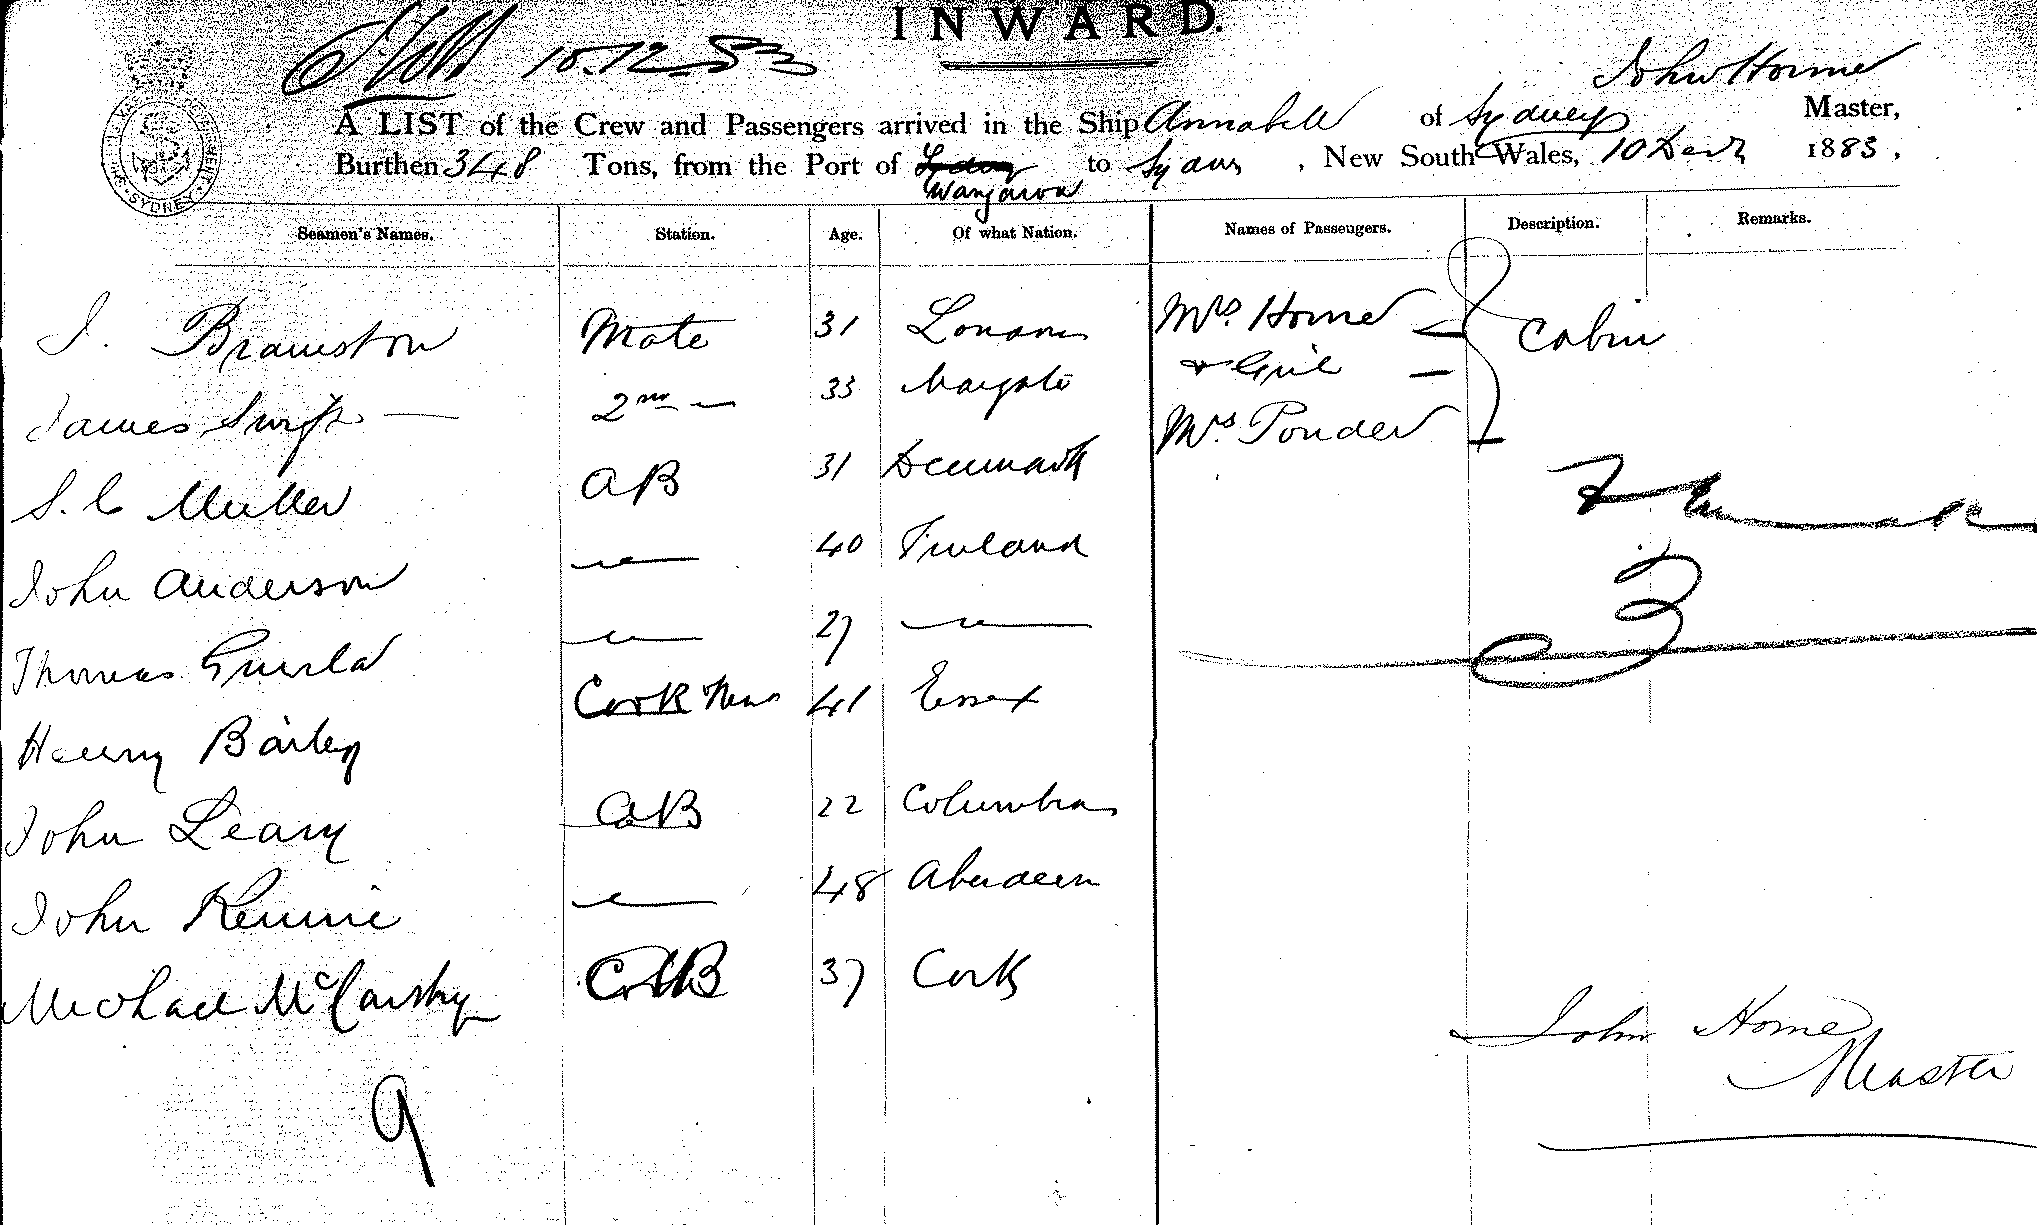 INWARD.
10.12.83
John Horne
A LIST of the Crew and Passengers arrived in the Ship Annabell of Sydney Master,
Burthen 348 Tons, from the Port of Wangaroa to Sydney, New South Wales, 10 Decr 1883,
Seamen's Names. Station. Age. Of what Nation. Names of Passengers. Description. Remarks.
J. Braunston Mate 31 London Mrs. Horne Cabin
& Girl
James Swift 2nd — 33 Margate Mrs. Ponder
S. C Muller AB 31 Denmark
John Anderson 〃 40 Finland
Thomas 〃 27 〃
Henry Bailey Cook 41 Essex
John Leary AB 22 Columbia
John Rennie 〃 48 Aberdeen
Michael McCarthy AB 37 Cork
John Horne
Master
9
3
SYDNEY